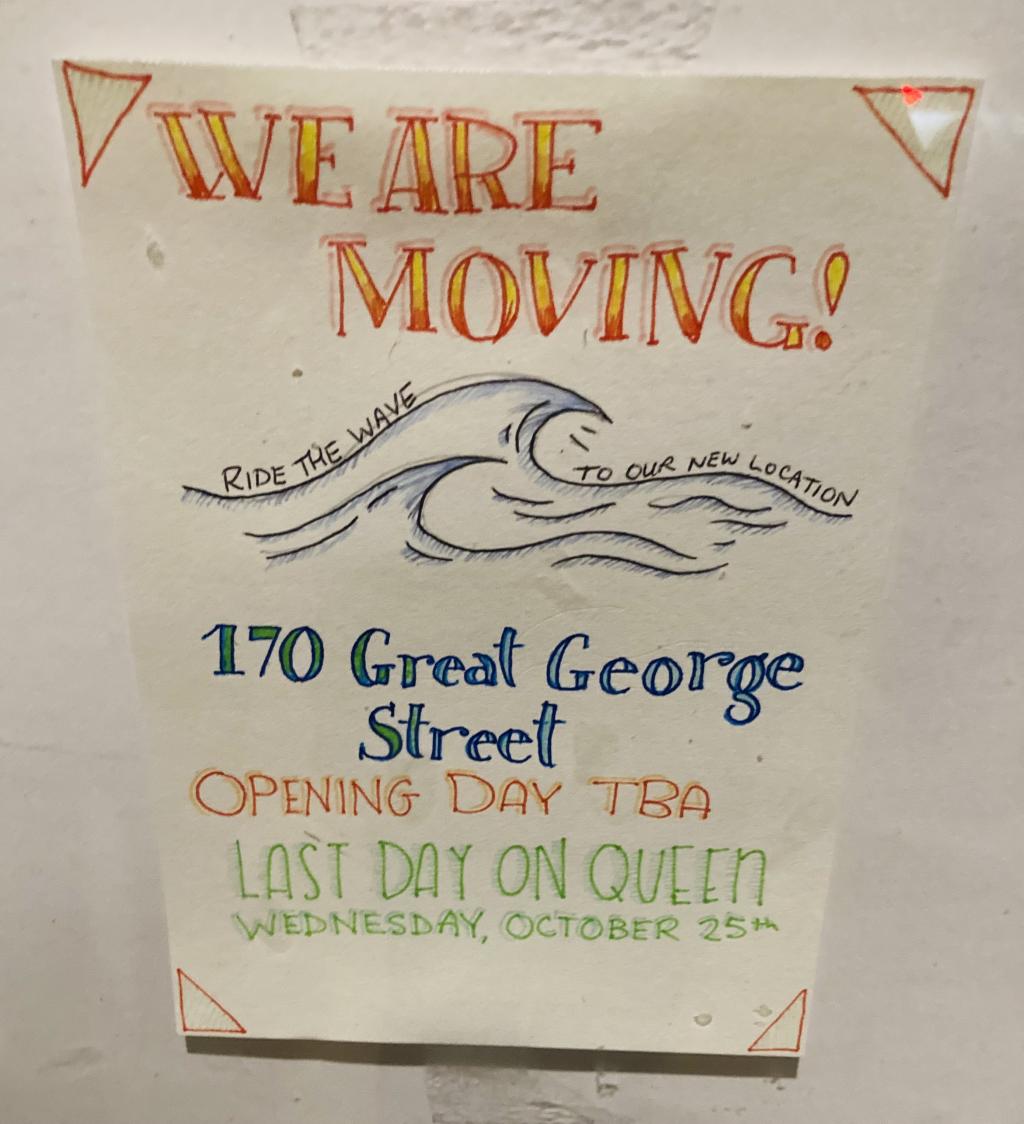 WE ARE
MOVING!
RIDE THE WAVE
TO OUR NEW LOCATION
170 Great George
Street
OPENING DAY TBA
LAST DAY ON QUEEN
WEDNESDAY, OCTOBER 25th